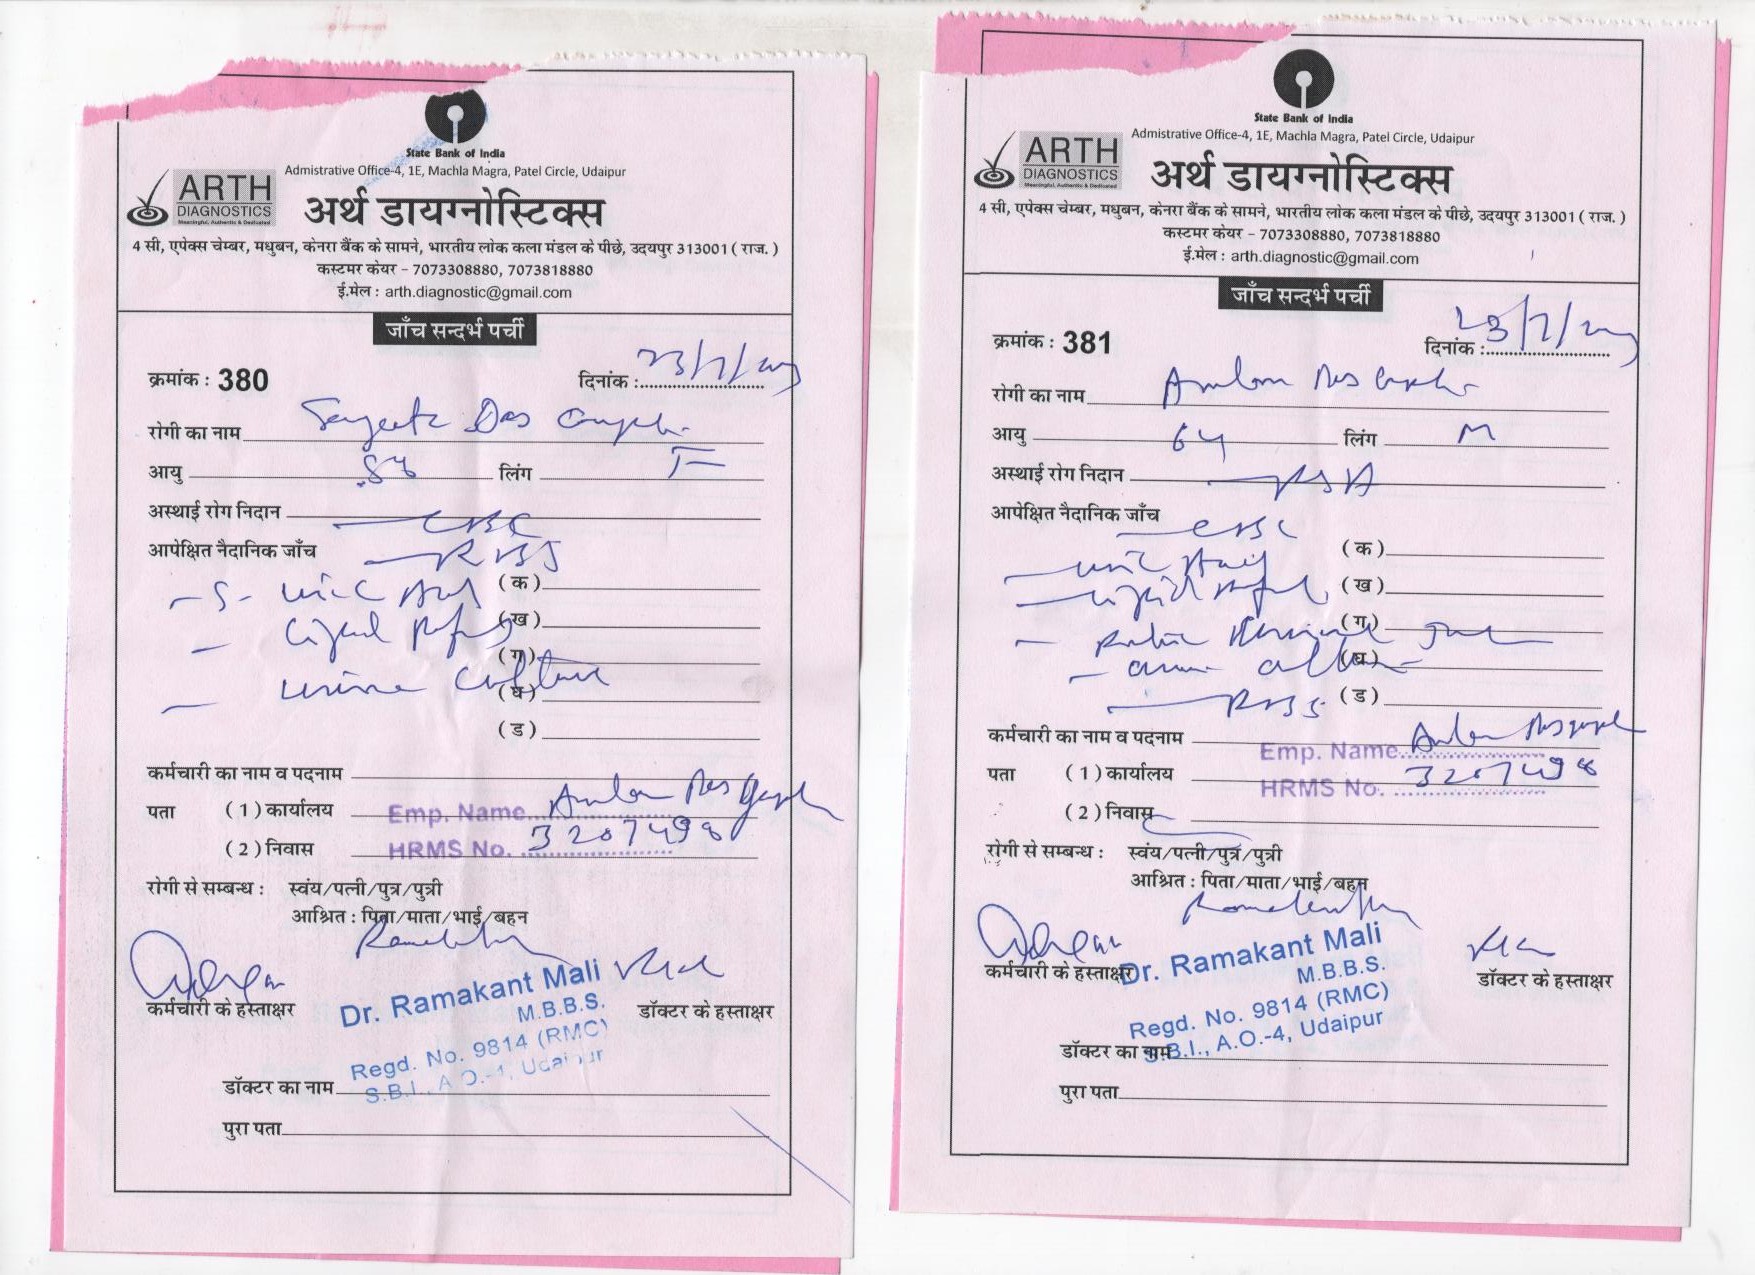 State Bank of India
Admistrative Office-4, 1E, Machla Magra, Patel Circle, Udaipur
ARTH
DIAGNOSTICS
Meaningful, Authentic & Dedicated
अर्थ डायग्नोस्टिक्स
4 सी, एपेक्स चेम्बर, मधुबन, केनरा बैंक के सामने, भारतीय लोक कला मंडल के पीछे, उदयपुर 313001 ( राज. )
कस्टमर केयर - 7073308880, 7073818880
ई.मेल : arth.diagnostic@gmail.com
जाँच सन्दर्भ पर्ची
क्रमांक : 380
दिनांक :
रोगी का नाम Das
आयु लिंग F
अस्थाई रोग निदान CBC
आपेक्षित नैदानिक जाँच RBS
(क)
(ख)
(ग)
- urine culture
(घ)
(ड)
कर्मचारी का नाम व पदनाम
पता (1) कार्यालय Emp. Name
(2) निवास HRMS No. 3207498
रोगी से सम्बन्ध : स्वंय/पत्नी/पुत्र/पुत्री
आश्रित : पिता/माता/भाई/बहन
कर्मचारी के हस्ताक्षर
Dr. Ramakant Mali
M.B.B.S.
डॉक्टर के हस्ताक्षर
Regd. No. 9814 (RMC)
S.B.I., A.O.-4, Udaipur
डॉक्टर का नाम
पुरा पता
State Bank of India
Admistrative Office-4, 1E, Machla Magra, Patel Circle, Udaipur
ARTH
DIAGNOSTICS
Meaningful, Authentic & Dedicated
अर्थ डायग्नोस्टिक्स
4 सी, एपेक्स चेम्बर, मधुबन, केनरा बैंक के सामने, भारतीय लोक कला मंडल के पीछे, उदयपुर 313001 ( राज. )
कस्टमर केयर - 7073308880, 7073818880
ई.मेल : arth.diagnostic@gmail.com
जाँच सन्दर्भ पर्ची
क्रमांक : 381
दिनांक :
रोगी का नाम
आयु 64 लिंग M
अस्थाई रोग निदान
आपेक्षित नैदानिक जाँच CBC
(क)
(ख)
(ग)
(घ)
RBS (ड)
कर्मचारी का नाम व पदनाम Emp. Name
पता (1) कार्यालय HRMS No. 3207498
(2) निवास
रोगी से सम्बन्ध : स्वंय/पत्नी/पुत्र/पुत्री
आश्रित : पिता/माता/भाई/बहन
कर्मचारी के हस्ताक्षर
Dr. Ramakant Mali
M.B.B.S.
डॉक्टर के हस्ताक्षर
Regd. No. 9814 (RMC)
S.B.I., A.O.-4, Udaipur
डॉक्टर का नाम
पुरा पता